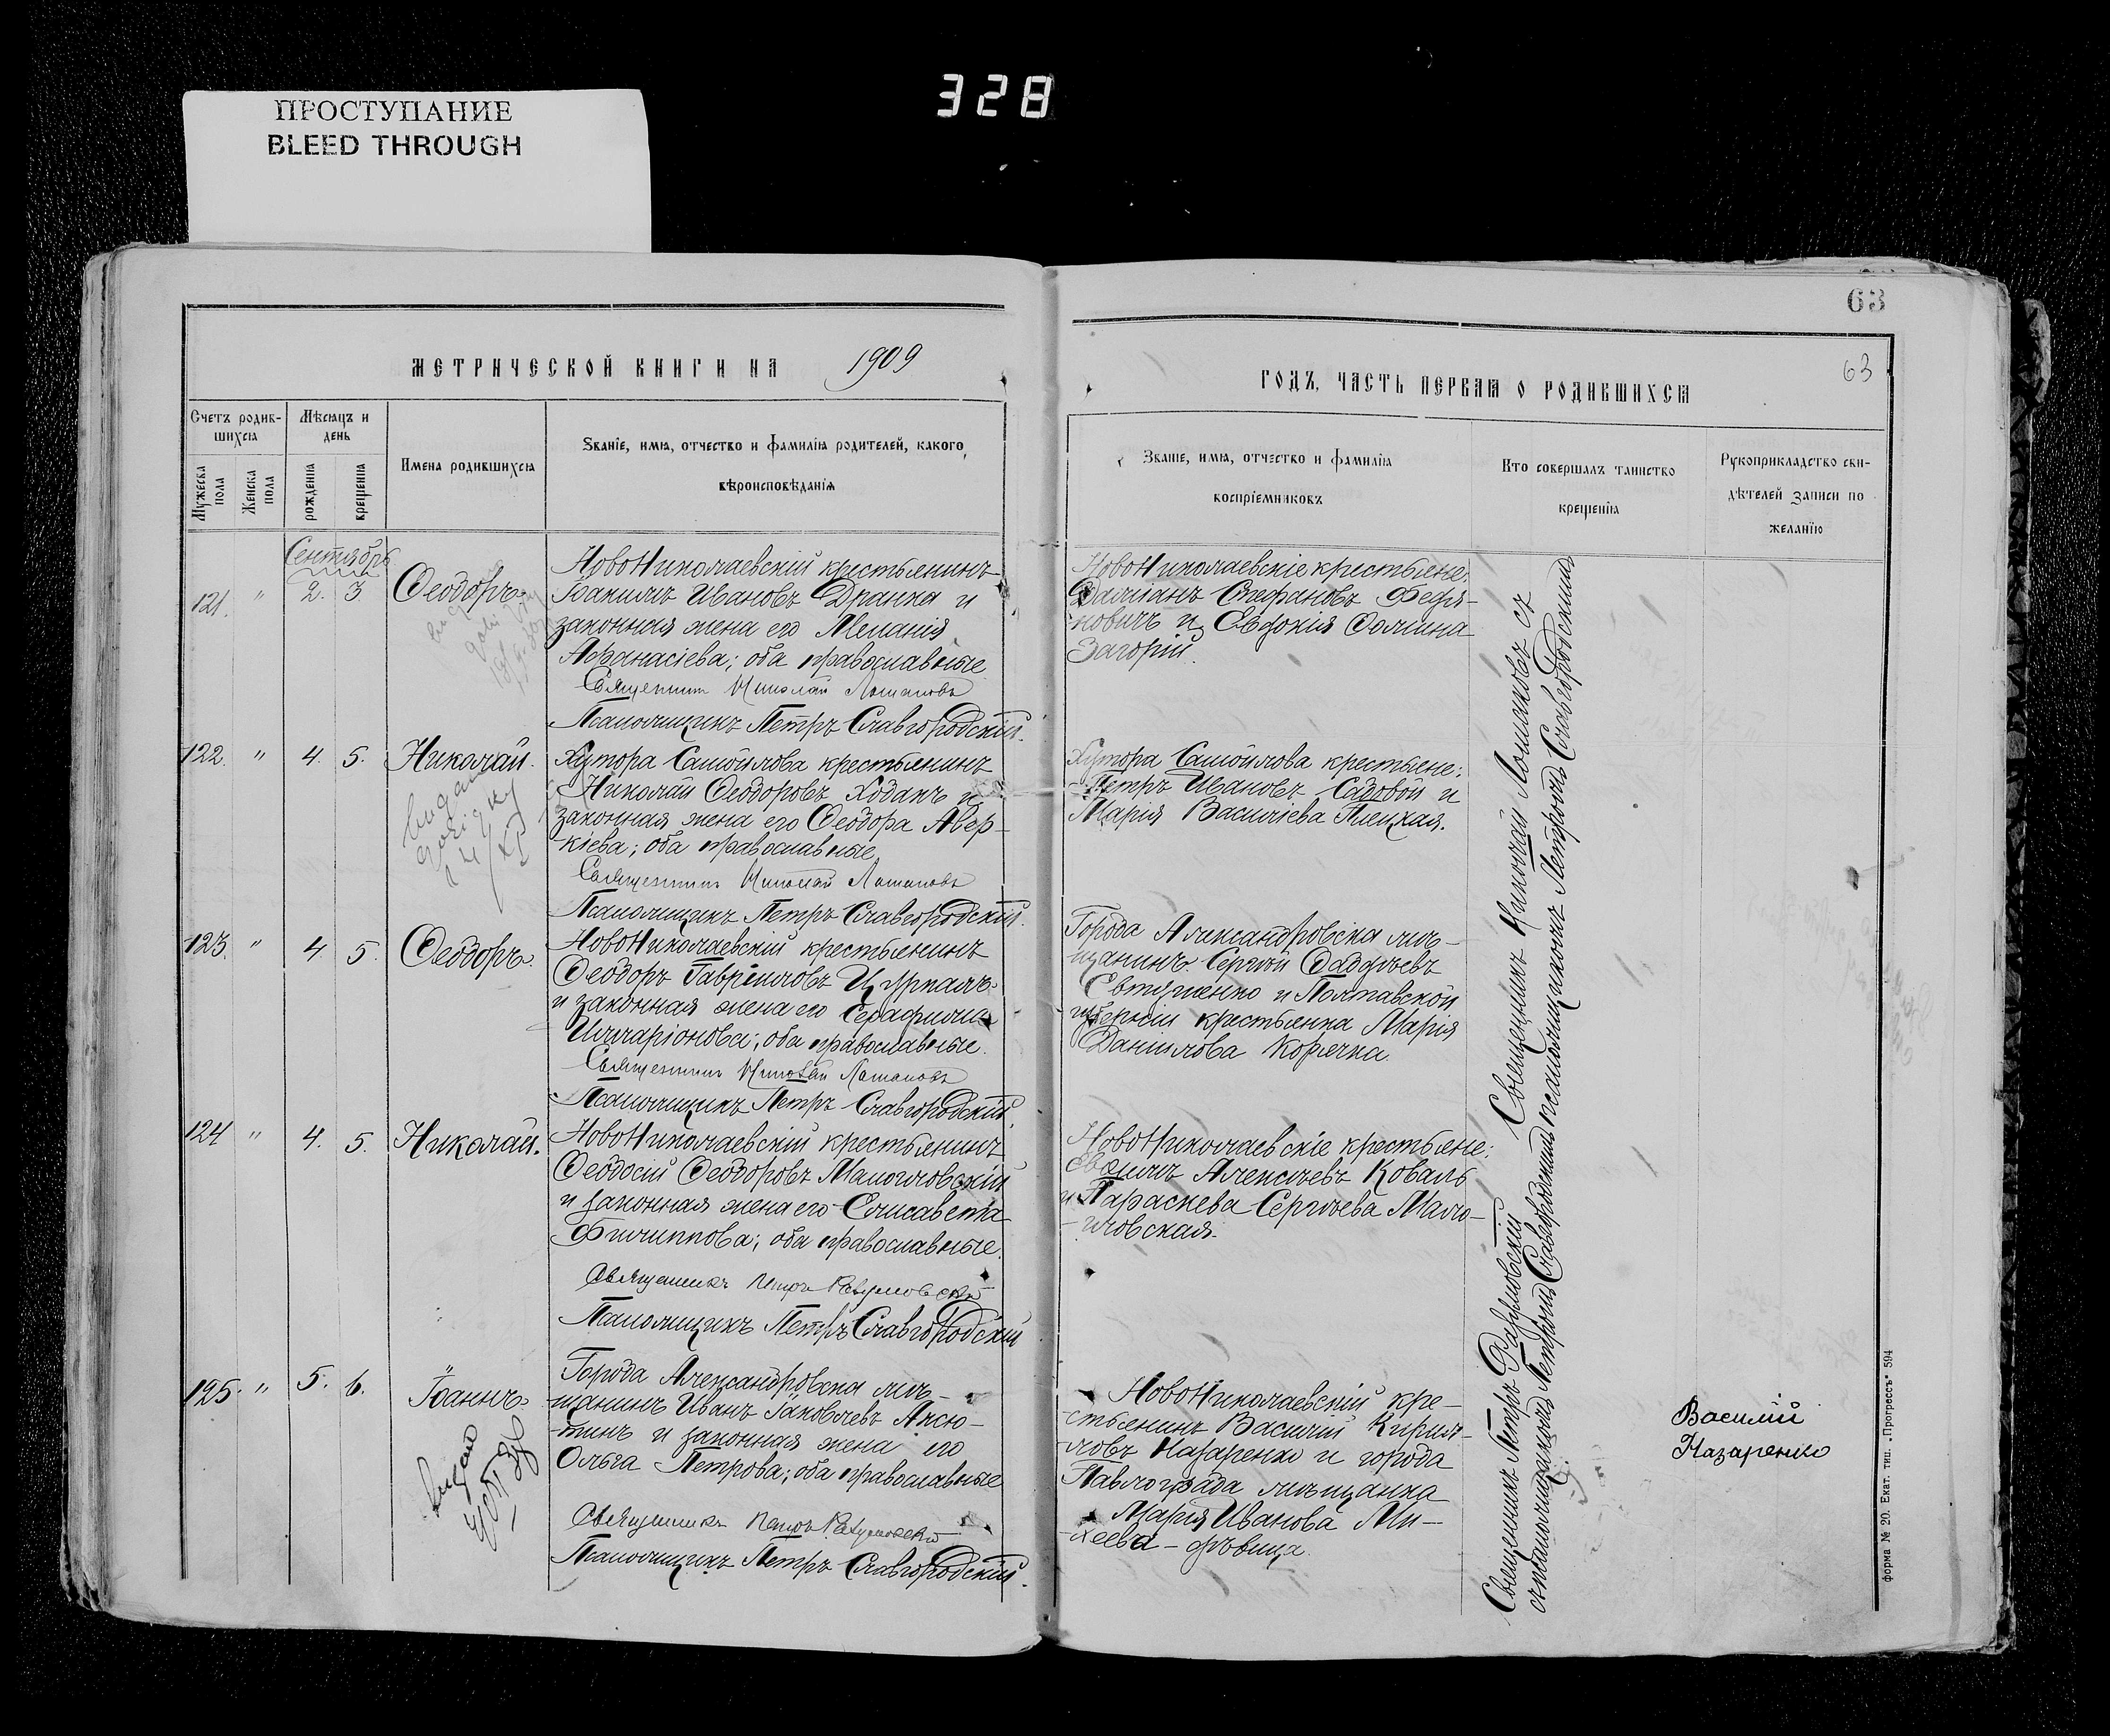 328
ПРОСТУПАНИЕ
BLEED THROUGH
63
МЕТРИЧЕСКОЙ КНИГИ НА 1909
ГОДЪ, ЧАСТЬ ПЕРВАЯ О РОДИВШИХСЯ
63
Счетъ родив-
шихся
Мужеска
пола
Женска
пола
Мѣсяцъ и
день
рожденія
крещенія
Имена родившихся
Званіе, имя, отчество и фамилія родителей, какого
вѣроисповѣданія
Званіе, имя, отчество и фамилія
воспріемниковъ
Кто совершалъ таинство
крещенія
Рукоприкладство сви-
дѣтелей записи по
желанію
Сентябрь
121. " 2. 3. Ѳеодоръ.
НовоНиколаевскій крестьянинъ
Іоакимъ Ивановъ Дранка и
законная жена его Меланія
Аѳанасіева; оба православные
Священникъ Николай Лотаковъ
Псаломщикъ Петръ Славгородскій.
НовоНиколаевскіе крестьяне:
Даміанъ Стефановъ
и Евдокія Ѳомина
Загорій.
122. " 4. 5. Николай.
Хутора Самойлова крестьянинъ
Николай Ѳеодоровъ Ходакъ и
законная жена его Ѳеодора Авер-
кіева; оба православные
Священникъ Николай Лотаковъ
Псаломщикъ Петръ Славгородскій.
Хутора Самойлова крестьяне:
Петръ Ивановъ Садовой и
Марія Василіева
123. " 4 5. Ѳеодоръ.
НовоНиколаевскій крестьянинъ
Ѳеодоръ Гавріиловъ
и законная жена его Серафима
Илларіонова; оба православные.
Священникъ Николай Лотаковъ
Псаломщикъ Петръ Славгородскій.
Города Александровска мѣ-
щанинъ Сергѣй Ѳаддѣевъ
Евтушенко и Полтавской
губерніи крестьянка Марія
Даніилова Корячка.
124 " 4. 5. Николай.
НовоНиколаевскій крестьянинъ
Ѳеодосій Ѳеодоровъ Малоиловскій
и законная жена его Елисавета
Филиппова; оба православные.
Священникъ Петръ Разумовскій
Псаломщикъ Петръ Славгородскій
НовоНиколаевскіе крестьяне:
Алексѣевъ Коваль
и Параскева Сергѣева Мало-
иловская.
125. " 5. 6. Іоаннъ.
Города Александровска мѣ-
щанинъ Иванъ Іаковлевъ Аксю-
тинъ и законная жена его
Ольга Петрова; оба православные
Священникъ Петръ Разумовскій
Псаломщикъ Петръ Славгородскій.
НовоНиколаевскій кре-
стьянинъ Василій Кирил-
ловъ Назаренко и города
Павлограда мѣщанка
Марія Иванова Ми-
хеева - дѣвица.
Священникъ Николай Лотаковъ съ
псаломщикомъ Петромъ Славгородскимъ
Священникъ Петръ Разумовскій
съ псаломщикомъ Петромъ Славгородскимъ
Василій
Назаренко
форма № 20. Екат. тип. „Прогрессъ" 594